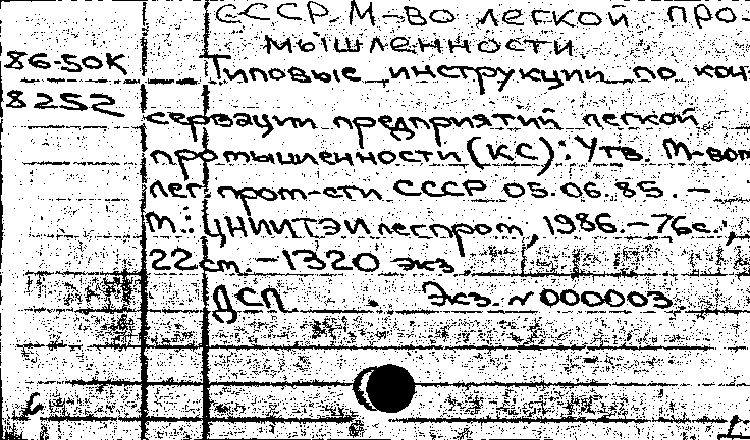 СССР. М-во легкой про-
мышленности.
86-50К Типовые инструкции по кон-
8252
сервации предприятий легкой
промышленности (КС): Утв. М-вом
лег. пром-сти СССР 05.06.85. –
М.: ЦНИИТЭИлегпром, 1986. – 76с.;
22 см. – 1320 экз.
ДСП Экз. № 000003